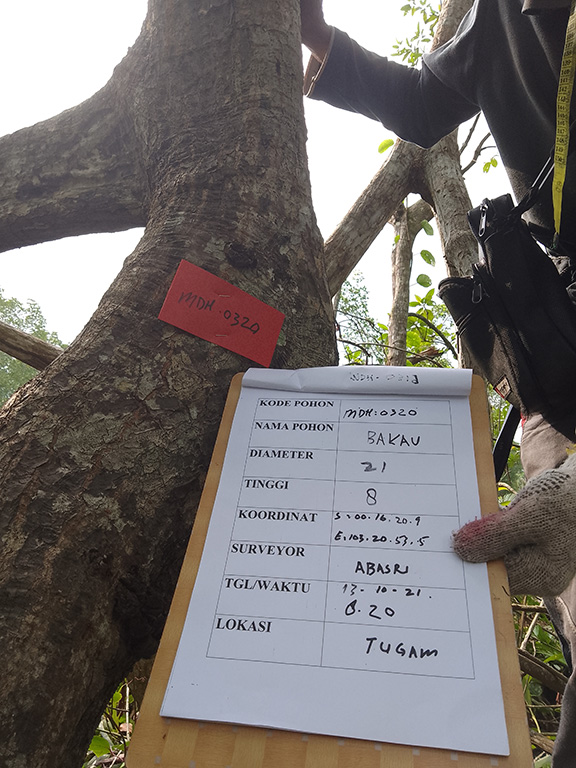 MDH-0320
KODE POHON MDH:0320
NAMA POHON BAKAU
DIAMETER 21
TINGGI 8
KOORDINAT S:00.16.20.9
E:103.20.53.5
SURVEYOR ABASRI
TGL/WAKTU 13-10-21.
0.20
LOKASI TUGAM